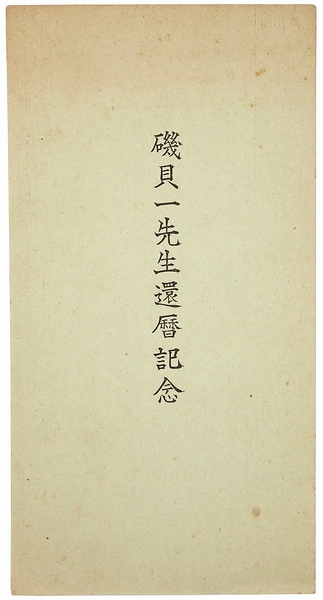 磯貝一先生還曆記念